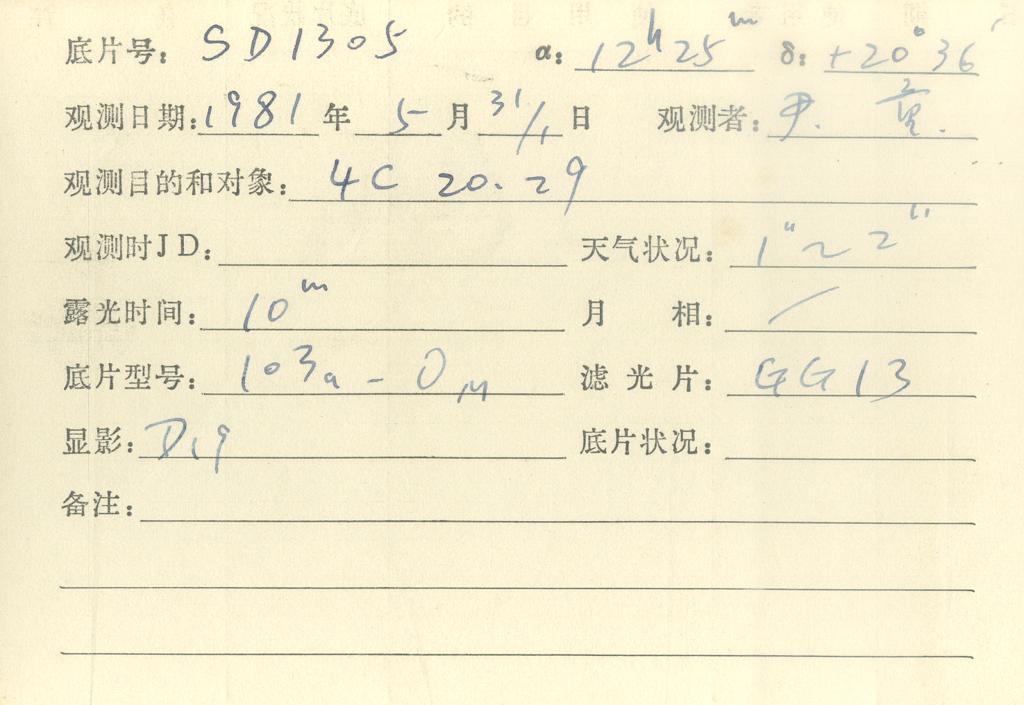 底片号: SD1305 α: 12ʰ25ᵐ δ: +20°36′
观测日期: 1981年5月31/1日 观测者: 尹.
观测目的和对象: 4C 20.29
观测时JD: 天气状况: 1"~2"
露光时间: 10ᵐ 月 相: /
底片型号: 103a-O 滤光片: GG13
显影: D19 底片状况:
备注: